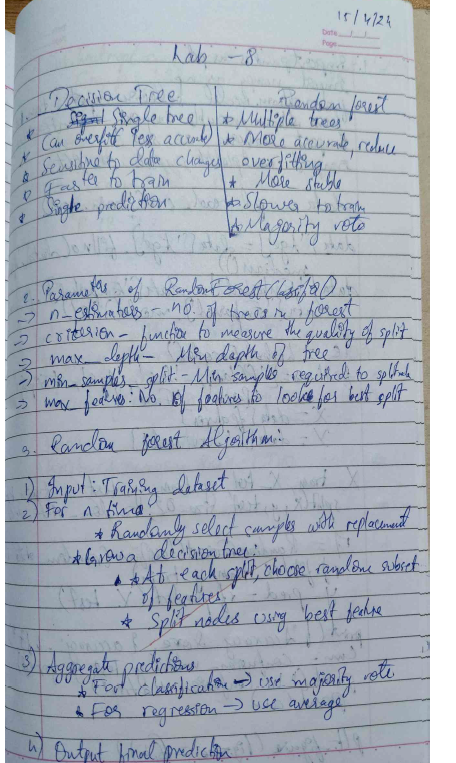 15/4/24
Date
Page
Lab - 8
1. Decision Tree
* Single tree
* Can overfit, less accurate
* Sensitive to data changes
* Faster to train
* Single prediction
Random forest
* Multiple trees
* More accurate, reduce
overfitting
* More stable
* Slower to train
* Majority vote
2. Parameters of RandomForestClassifier()
→ n_estimators - no. of trees in forest
→ criterion - function to measure the quality of split
→ max_depth - Min depth of tree
→ min_samples_split: - Min samples required to split node
→ max_features: No. of features to look for best split
3. Random forest Algorithm:-
1) Input: Training dataset
2) For n time
* Randomly select samples with replacement
* Grow a decision tree:
* At each split, choose random subset
of features
* Split nodes using best feature
3) Aggregate predictions
* For classification → use majority vote
* For regression → use average
4) Output final prediction